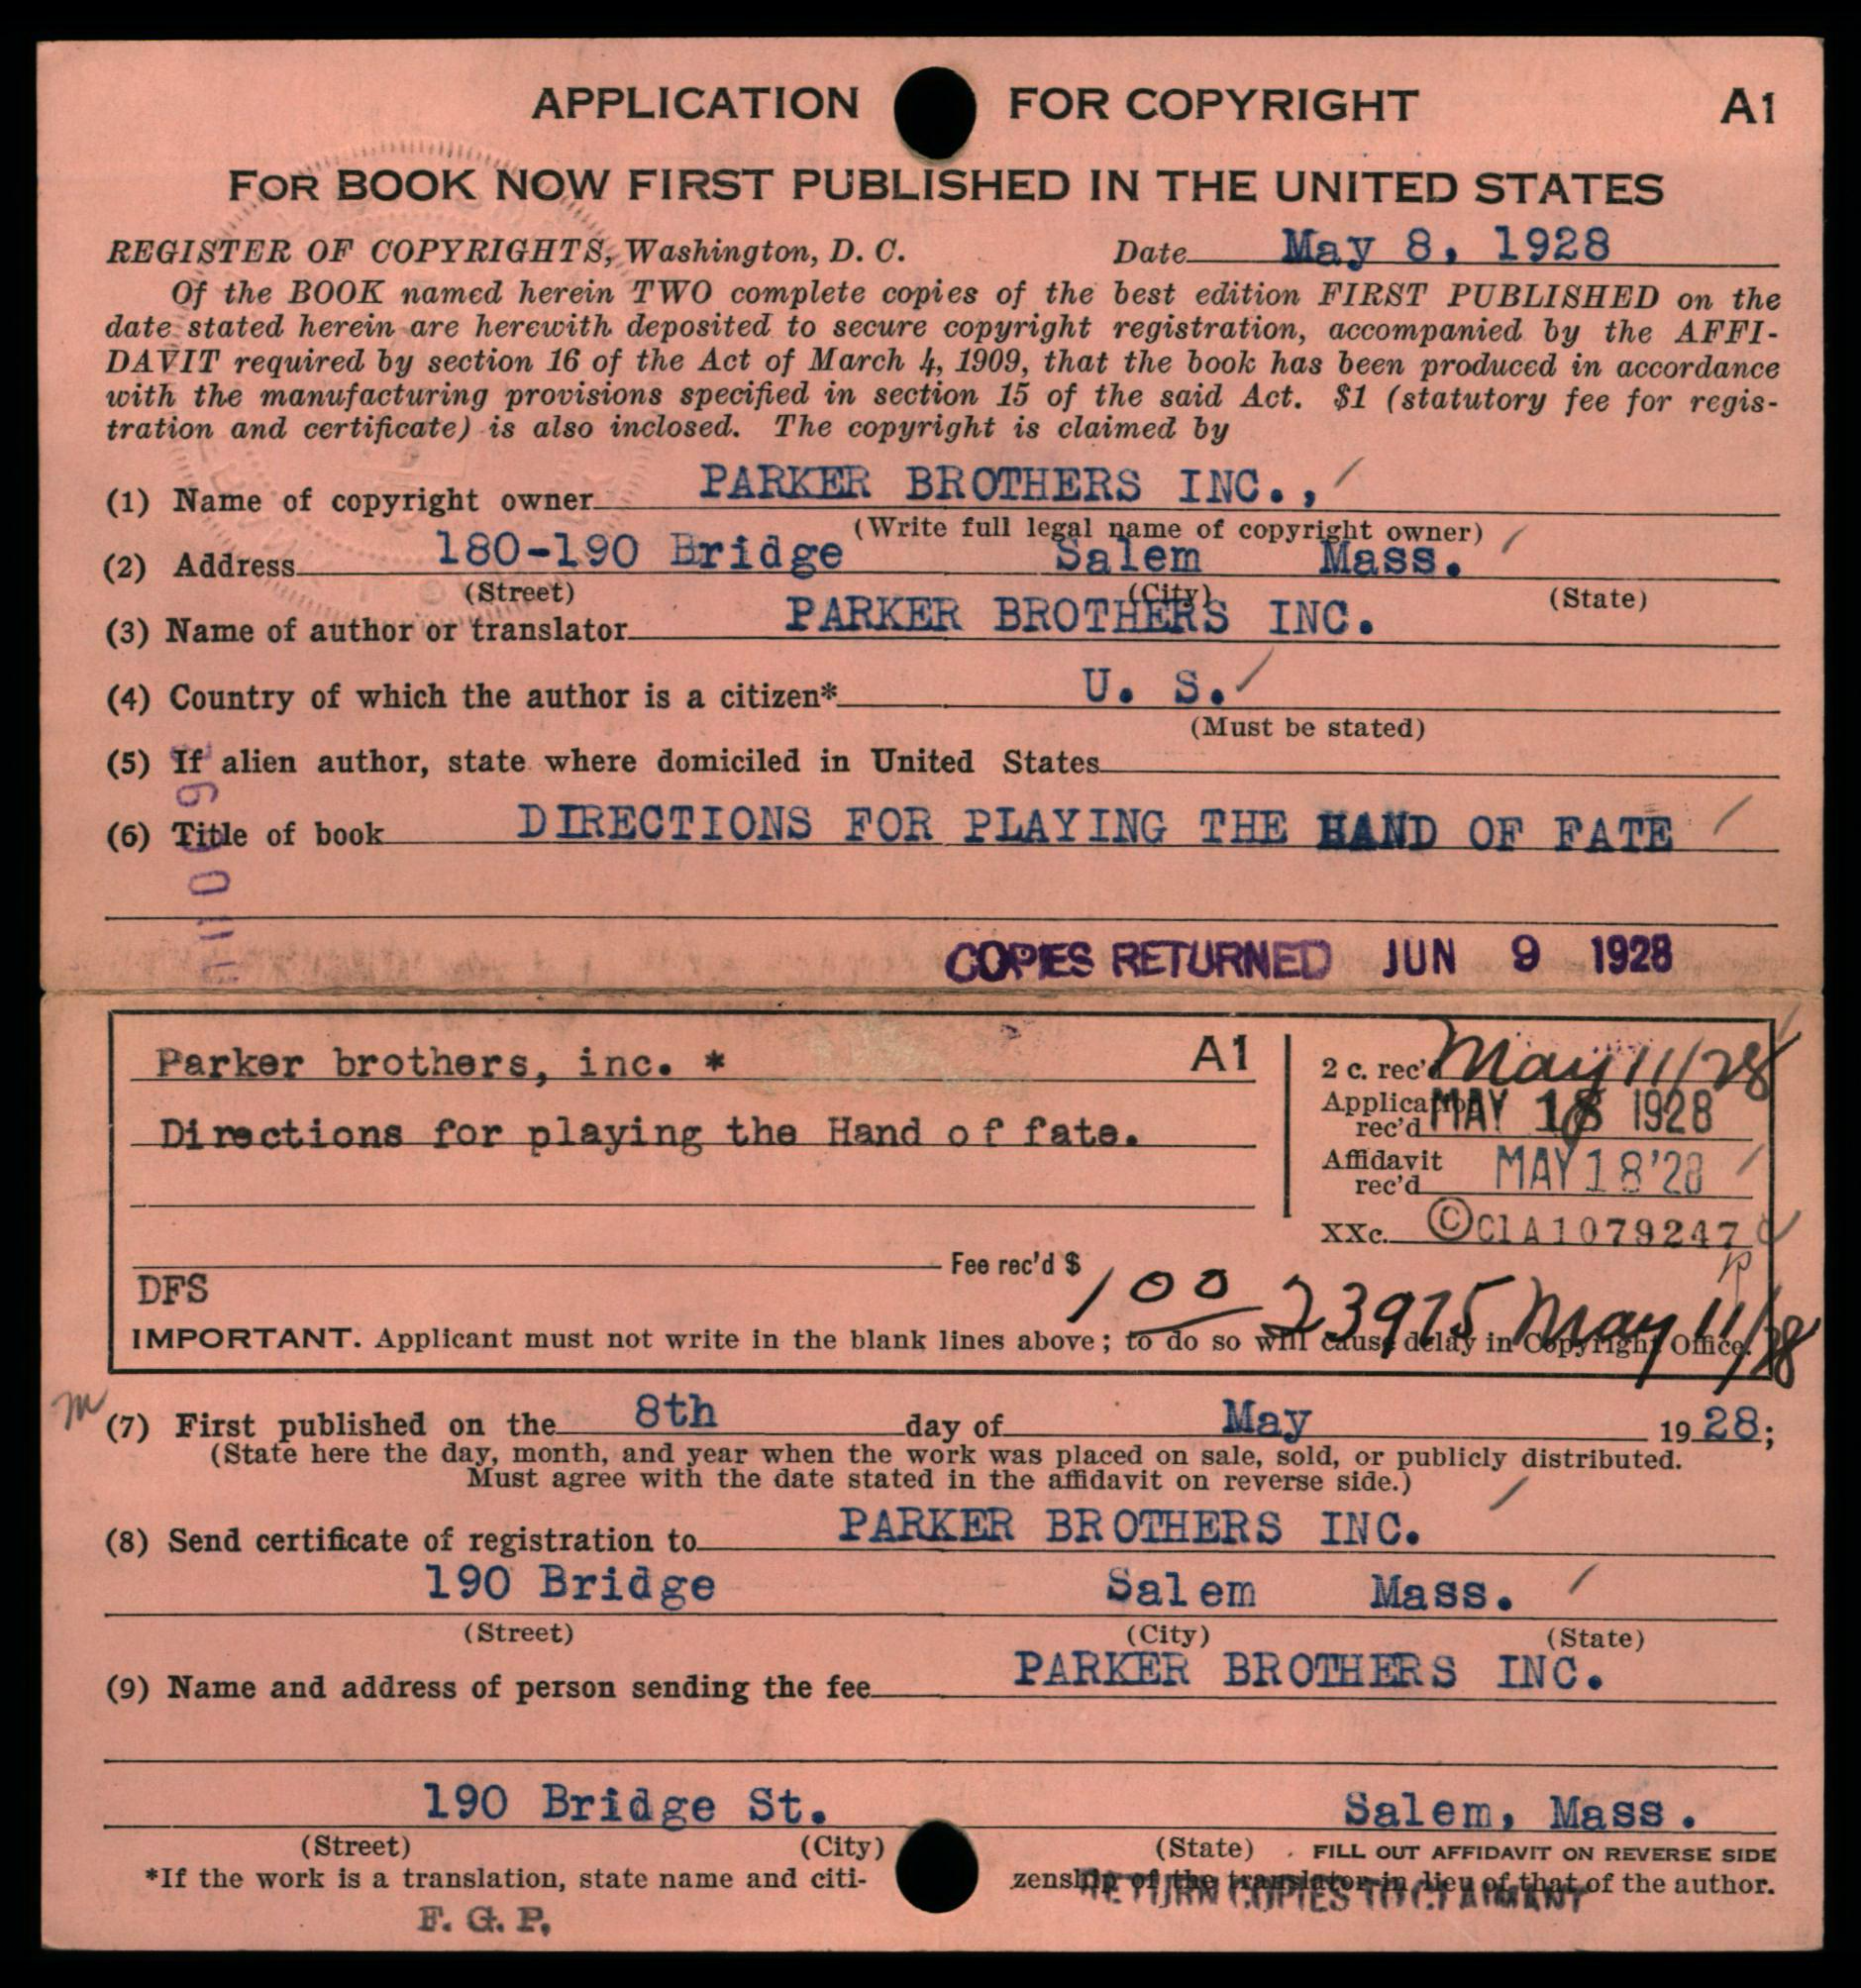 APPLICATION FOR COPYRIGHT A1
FOR BOOK NOW FIRST PUBLISHED IN THE UNITED STATES
REGISTER OF COPYRIGHTS, Washington, D. C. Date May 8, 1928
Of the BOOK named herein TWO complete copies of the best edition FIRST PUBLISHED on the
date stated herein are herewith deposited to secure copyright registration, accompanied by the AFFI-
DAVIT required by section 16 of the Act of March 4, 1909, that the book has been produced in accordance
with the manufacturing provisions specified in section 15 of the said Act. $1 (statutory fee for regis-
tration and certificate) is also inclosed. The copyright is claimed by
(1) Name of copyright owner PARKER BROTHERS INC.,
(Write full legal name of copyright owner)
(2) Address 180-190 Bridge Salem Mass.
(Street) (City) (State)
(3) Name of author or translator PARKER BROTHERS INC.
(4) Country of which the author is a citizen* U. S.
(Must be stated)
(5) If alien author, state where domiciled in United States
(6) Title of book DIRECTIONS FOR PLAYING THE HAND OF FATE
COPIES RETURNED JUN 9 1928
Parker brothers, inc. * A1
2 c. rec'd May 11/28
Directions for playing the Hand of fate.
Application rec'd MAY 18 1928
Affidavit rec'd MAY 18 '28
XXc. ©Cl A 1079247
Fee rec'd $ 1 00 23975 May 11/28
DFS
IMPORTANT. Applicant must not write in the blank lines above; to do so will cause delay in Copyright Office.
m
(7) First published on the 8th day of May 1928;
(State here the day, month, and year when the work was placed on sale, sold, or publicly distributed.
Must agree with the date stated in the affidavit on reverse side.)
(8) Send certificate of registration to PARKER BROTHERS INC.
190 Bridge Salem Mass.
(Street) (City) (State)
(9) Name and address of person sending the fee PARKER BROTHERS INC.
190 Bridge St. Salem, Mass.
(Street) (City) (State) FILL OUT AFFIDAVIT ON REVERSE SIDE
*If the work is a translation, state name and citi- zenship of the translator in lieu of that of the author.
RETURN COPIES TO CLAIMANT
F. G. P.